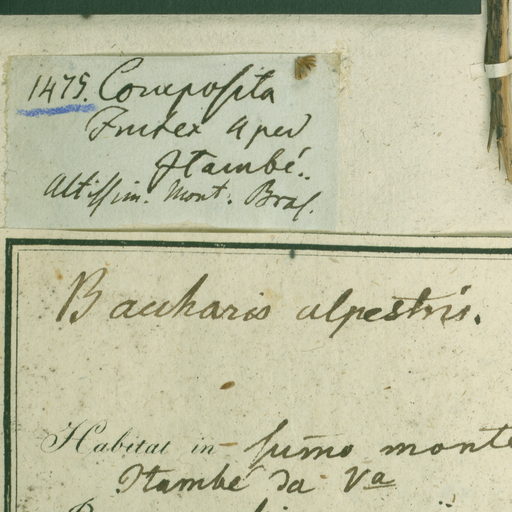 1475. Composita
Frutex 4 ped
Itambé.
Altissim. Mont. Bras.
Baccharis alpestris.
Habitat in sumo monte
Itambé da Va